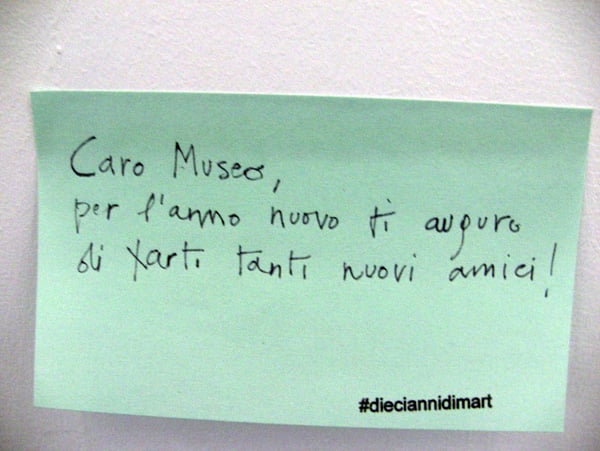 Caro Museo,
per l'anno nuovo ti auguro
di farti tanti nuovi amici!
#diecianniдimart